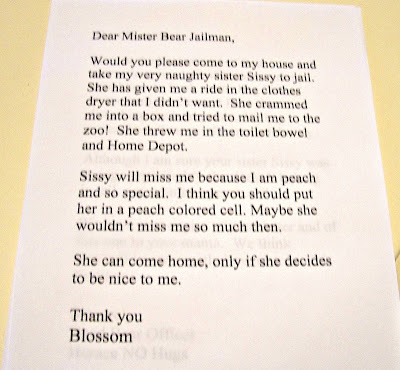 Dear Mister Bear Jailman,
Would you please come to my house and
take my very naughty sister Sissy to jail.
She has given me a ride in the clothes
dryer that I didn't want.  She crammed
me into a box and tried to mail me to the
zoo!  She threw me in the toilet bowel
and Home Depot.
Sissy will miss me because I am peach
and so special.  I think you should put
her in a peach colored cell. Maybe she
wouldn't miss me so much then.
She can come home, only if she decides
to be nice to me.
Thank you
Blossom